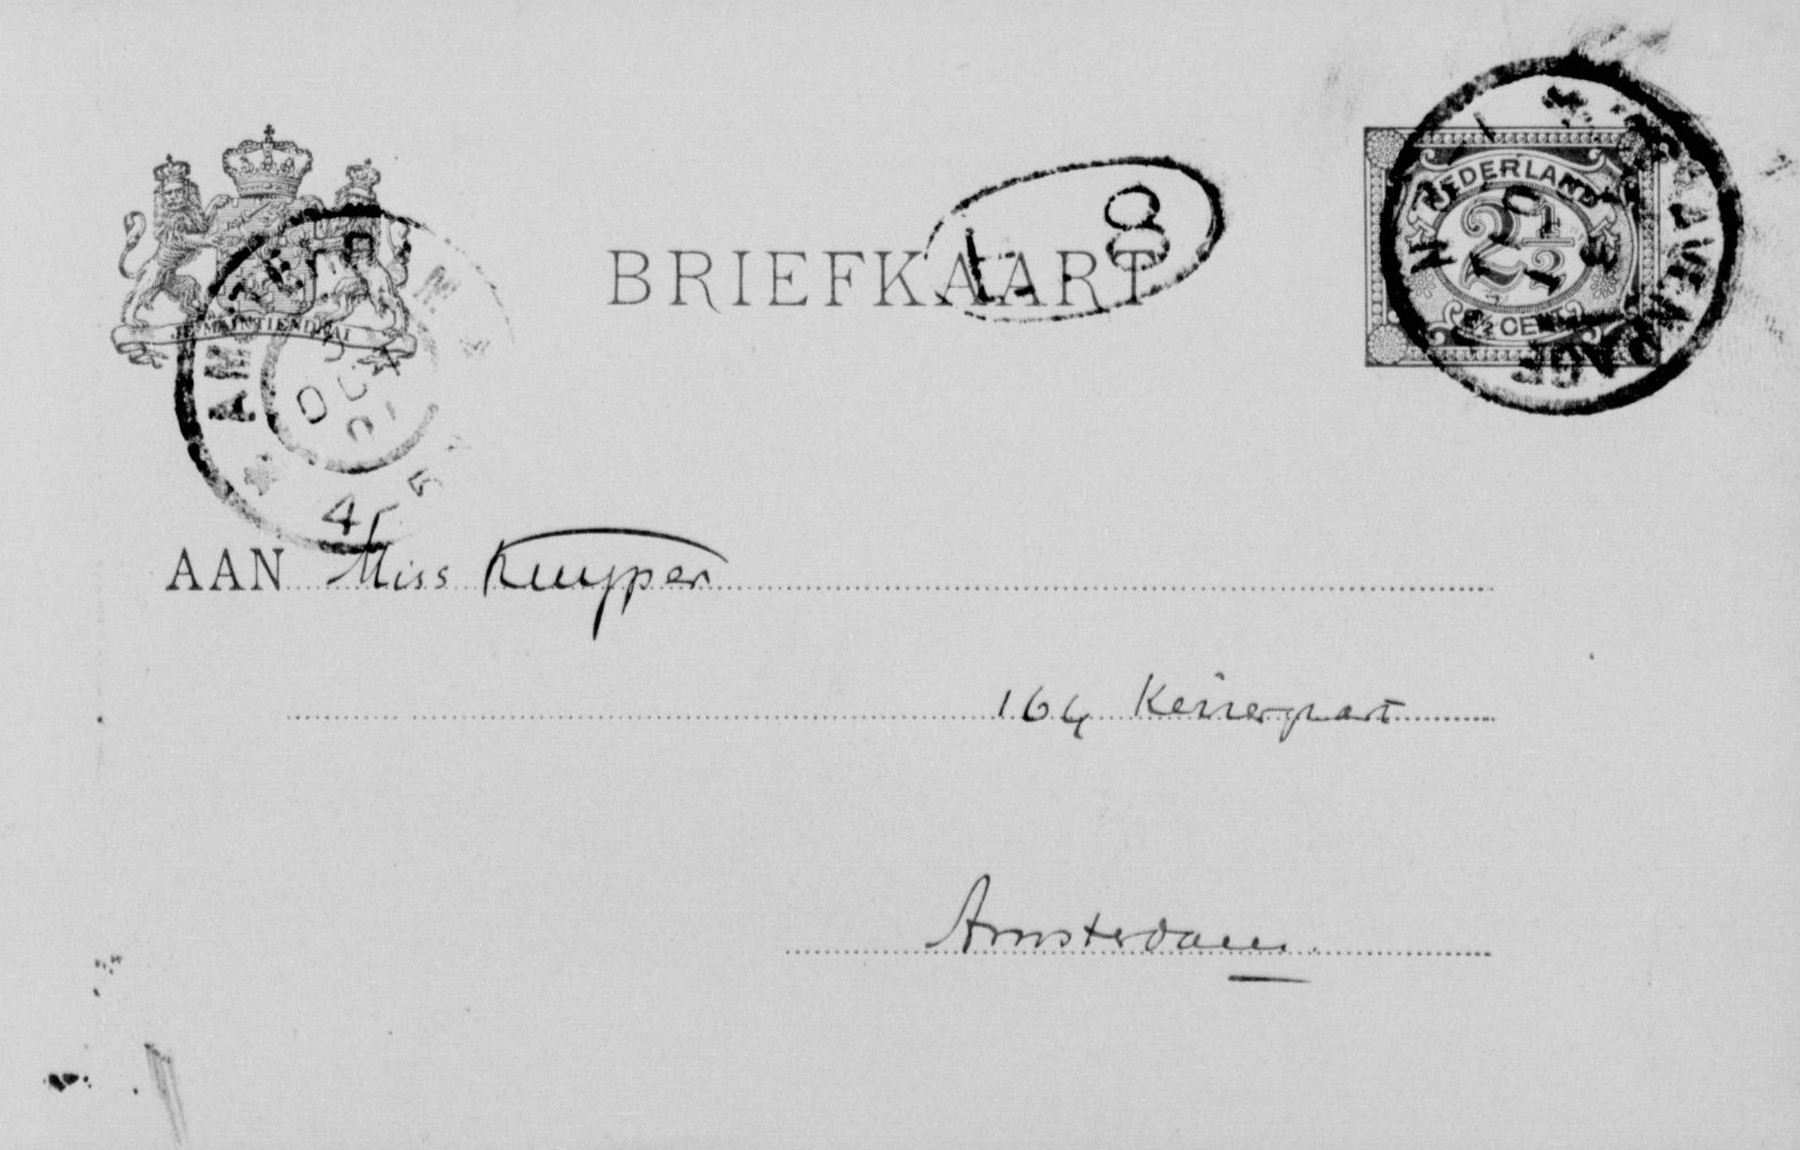 JE MAINTIENDRAI
BRIEFKAART
NEDERLAND
2½
2½ CENT
'S GRAVENHAGE
AMSTERDAM
4
8
AAN Miss Kuyper
164 Keizergracht
Amsterdam.